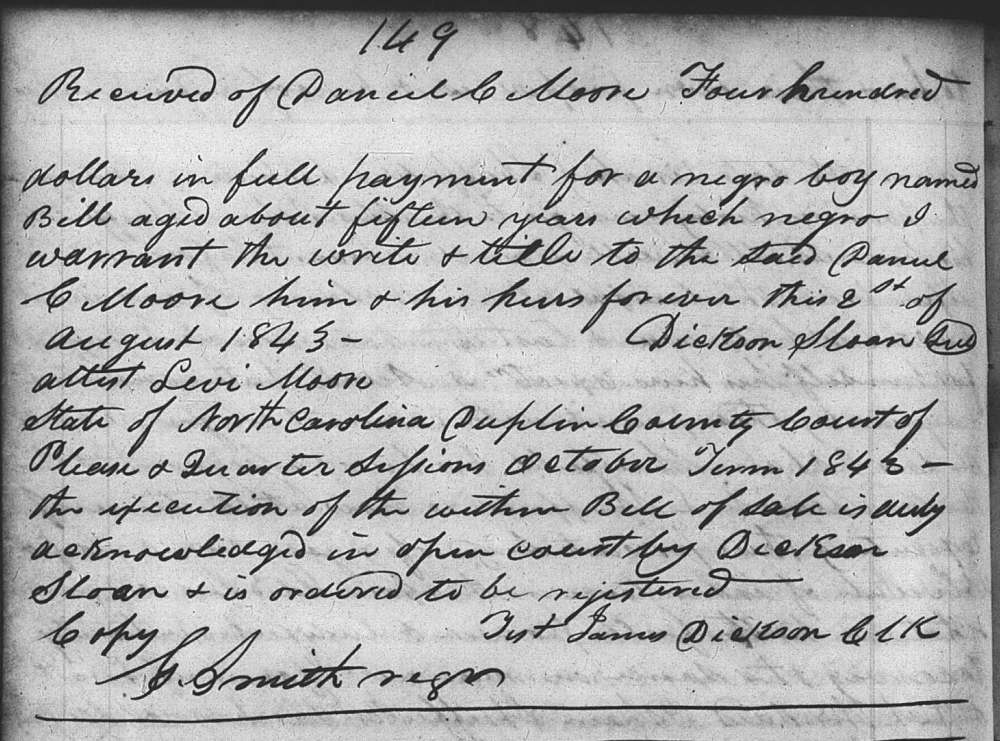 149
Received of Daniel C Moore Four hundred
dollars in full payment for a negro boy named
Bill aged about fifteen years which negro I
warrant the write & title to the said Daniel
C Moore him & his heirs forever this 2st of
August 1843 -
Dickson Sloan
attest Levi Moore
State of North Carolina Duplin County Court of
Please & Quarter Sessions October Term 1843 -
the execution of the within Bill of Sale is duly
acknowledged in open court by Dickson
Sloan & is ordered to be rejistered
Copy
Test James Dickson Clk
Smith regr